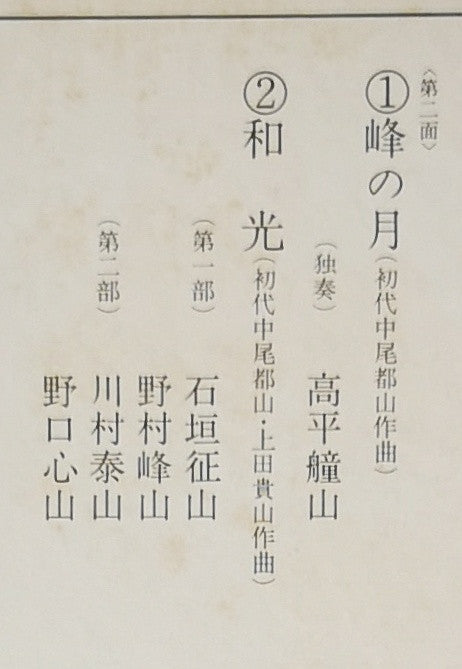 〈第二面〉
①峰の月(初代中尾都山作曲)
(独奏) 高平艟山
②和 光(初代中尾都山・上田貴山作曲)
(第一部) 石垣征山
野村峰山
(第二部) 川村泰山
野口心山